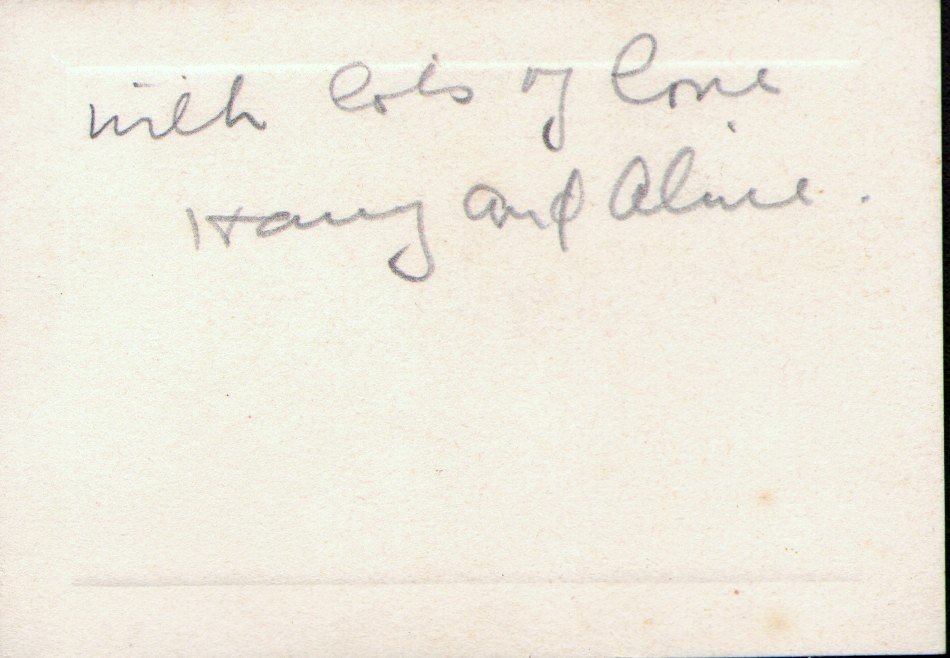 with lots of love
Harry and Aline.